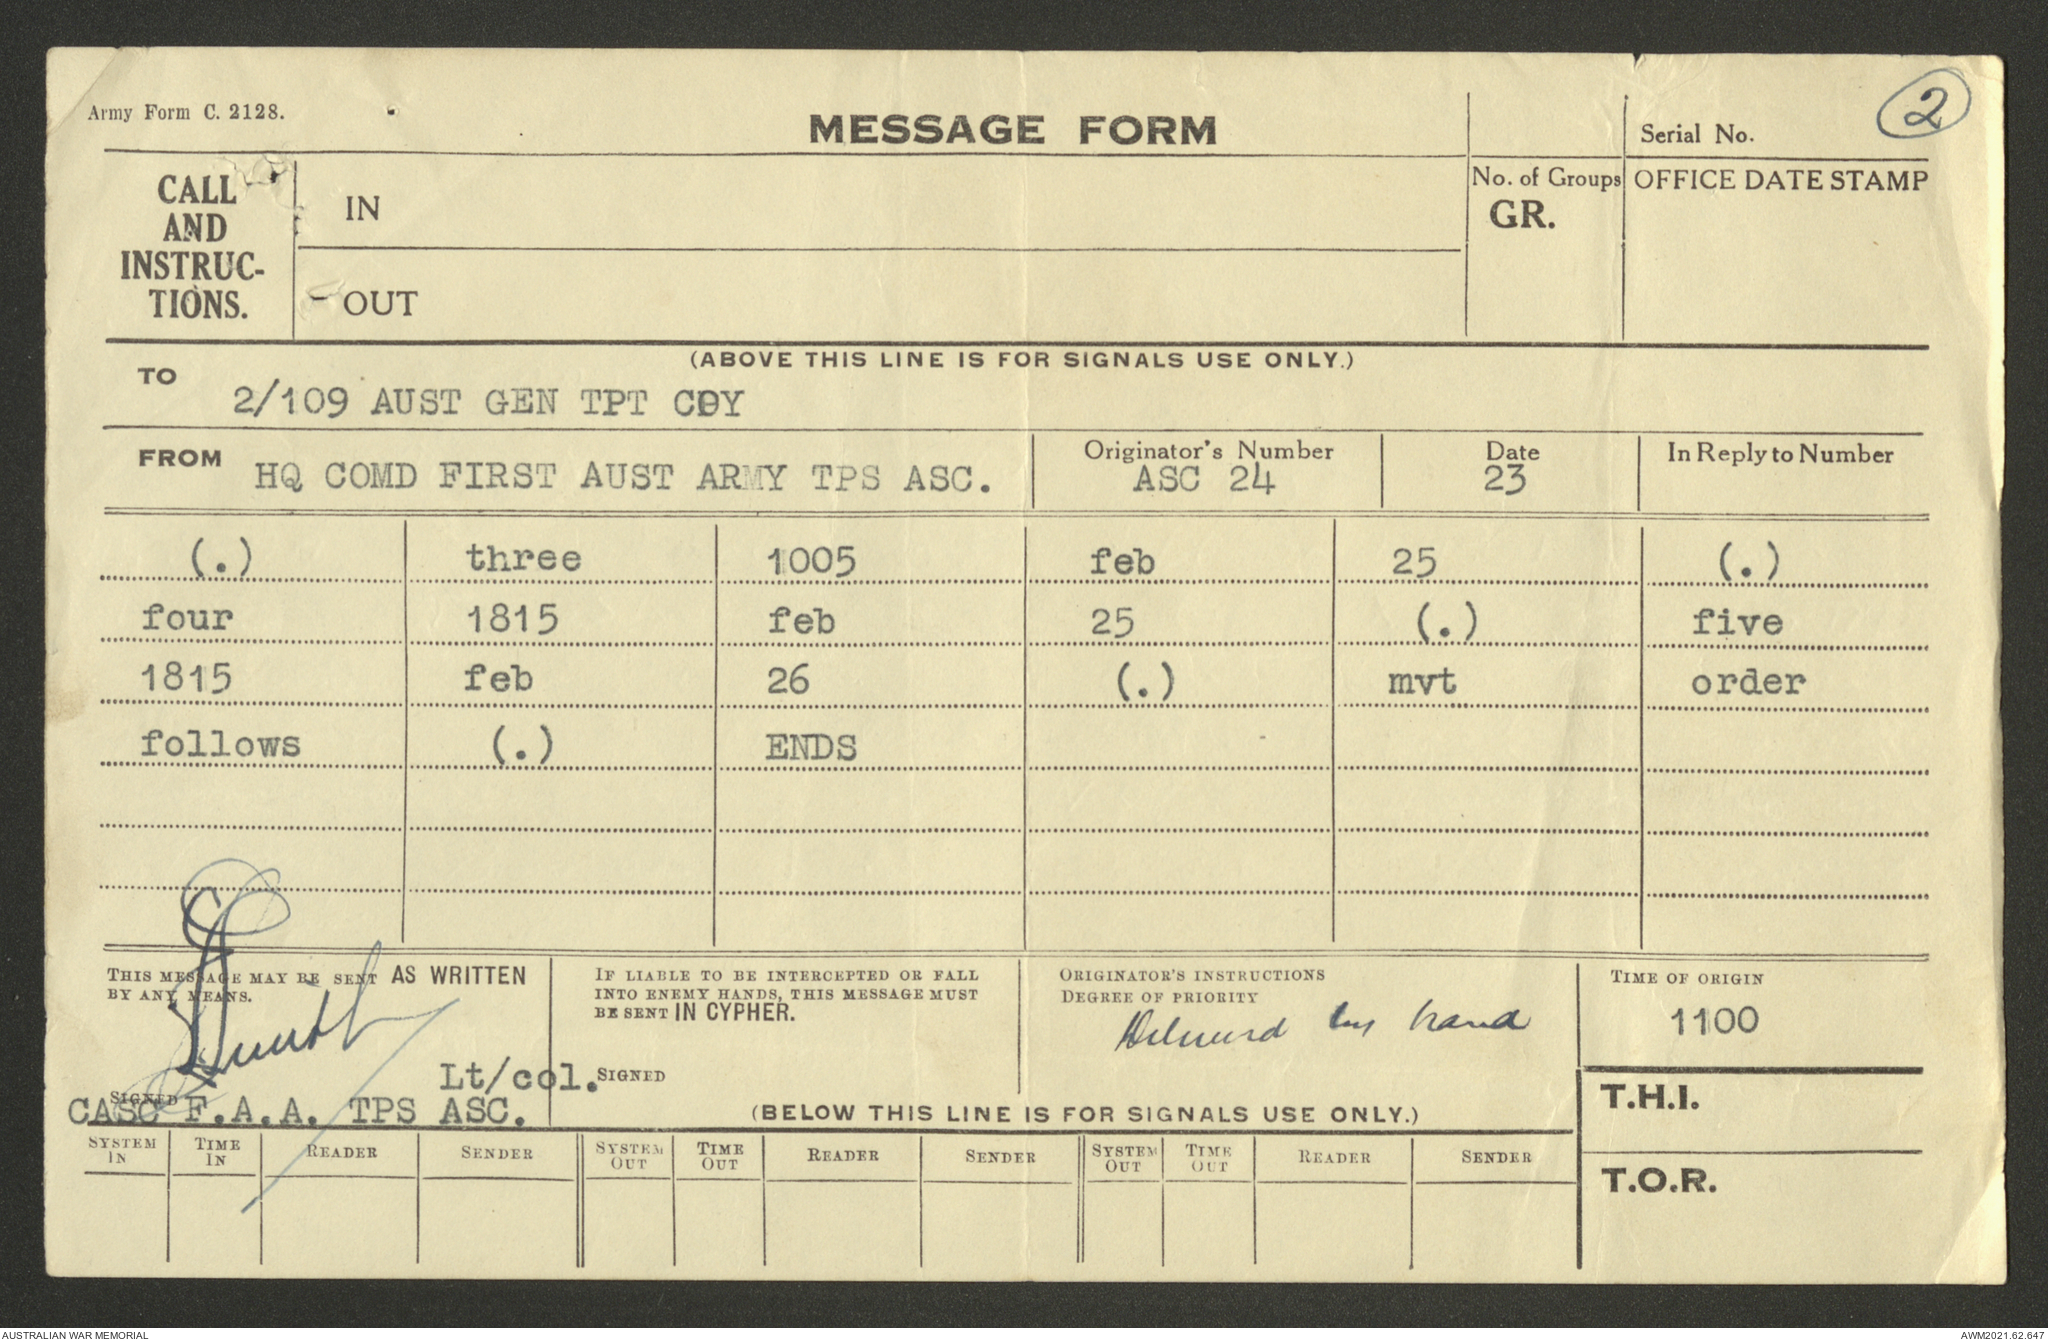 Army Form C. 2128.
MESSAGE FORM
Serial No.
2
CALL AND INSTRUC-TIONS.
IN
OUT
No. of Groups
GR.
OFFICE DATE STAMP
(ABOVE THIS LINE IS FOR SIGNALS USE ONLY.)
TO
2/109 AUST GEN TPT COY
FROM HQ COMD FIRST AUST ARMY TPS ASC.
Originator's Number
ASC 24
Date
23
In Reply to Number
(.) three 1005 feb 25 (.)
four 1815 feb 25 (.) five
1815 feb 26 (.) mvt order
follows (.) ENDS
THIS MESSAGE MAY BE SENT AS WRITTEN
BY ANY MEANS.
Lt/col.
SIGNED
CASC F.A.A. TPS ASC.
IF LIABLE TO BE INTERCEPTED OR FALL
INTO ENEMY HANDS, THIS MESSAGE MUST
BE SENT IN CYPHER.
SIGNED
ORIGINATOR'S INSTRUCTIONS
DEGREE OF PRIORITY
by hand
TIME OF ORIGIN
1100
T.H.I.
T.O.R.
(BELOW THIS LINE IS FOR SIGNALS USE ONLY.)
SYSTEM IN TIME IN READER SENDER SYSTEM OUT TIME OUT READER SENDER SYSTEM OUT TIME OUT READER SENDER
AUSTRALIAN WAR MEMORIAL
AWM2021.62.647